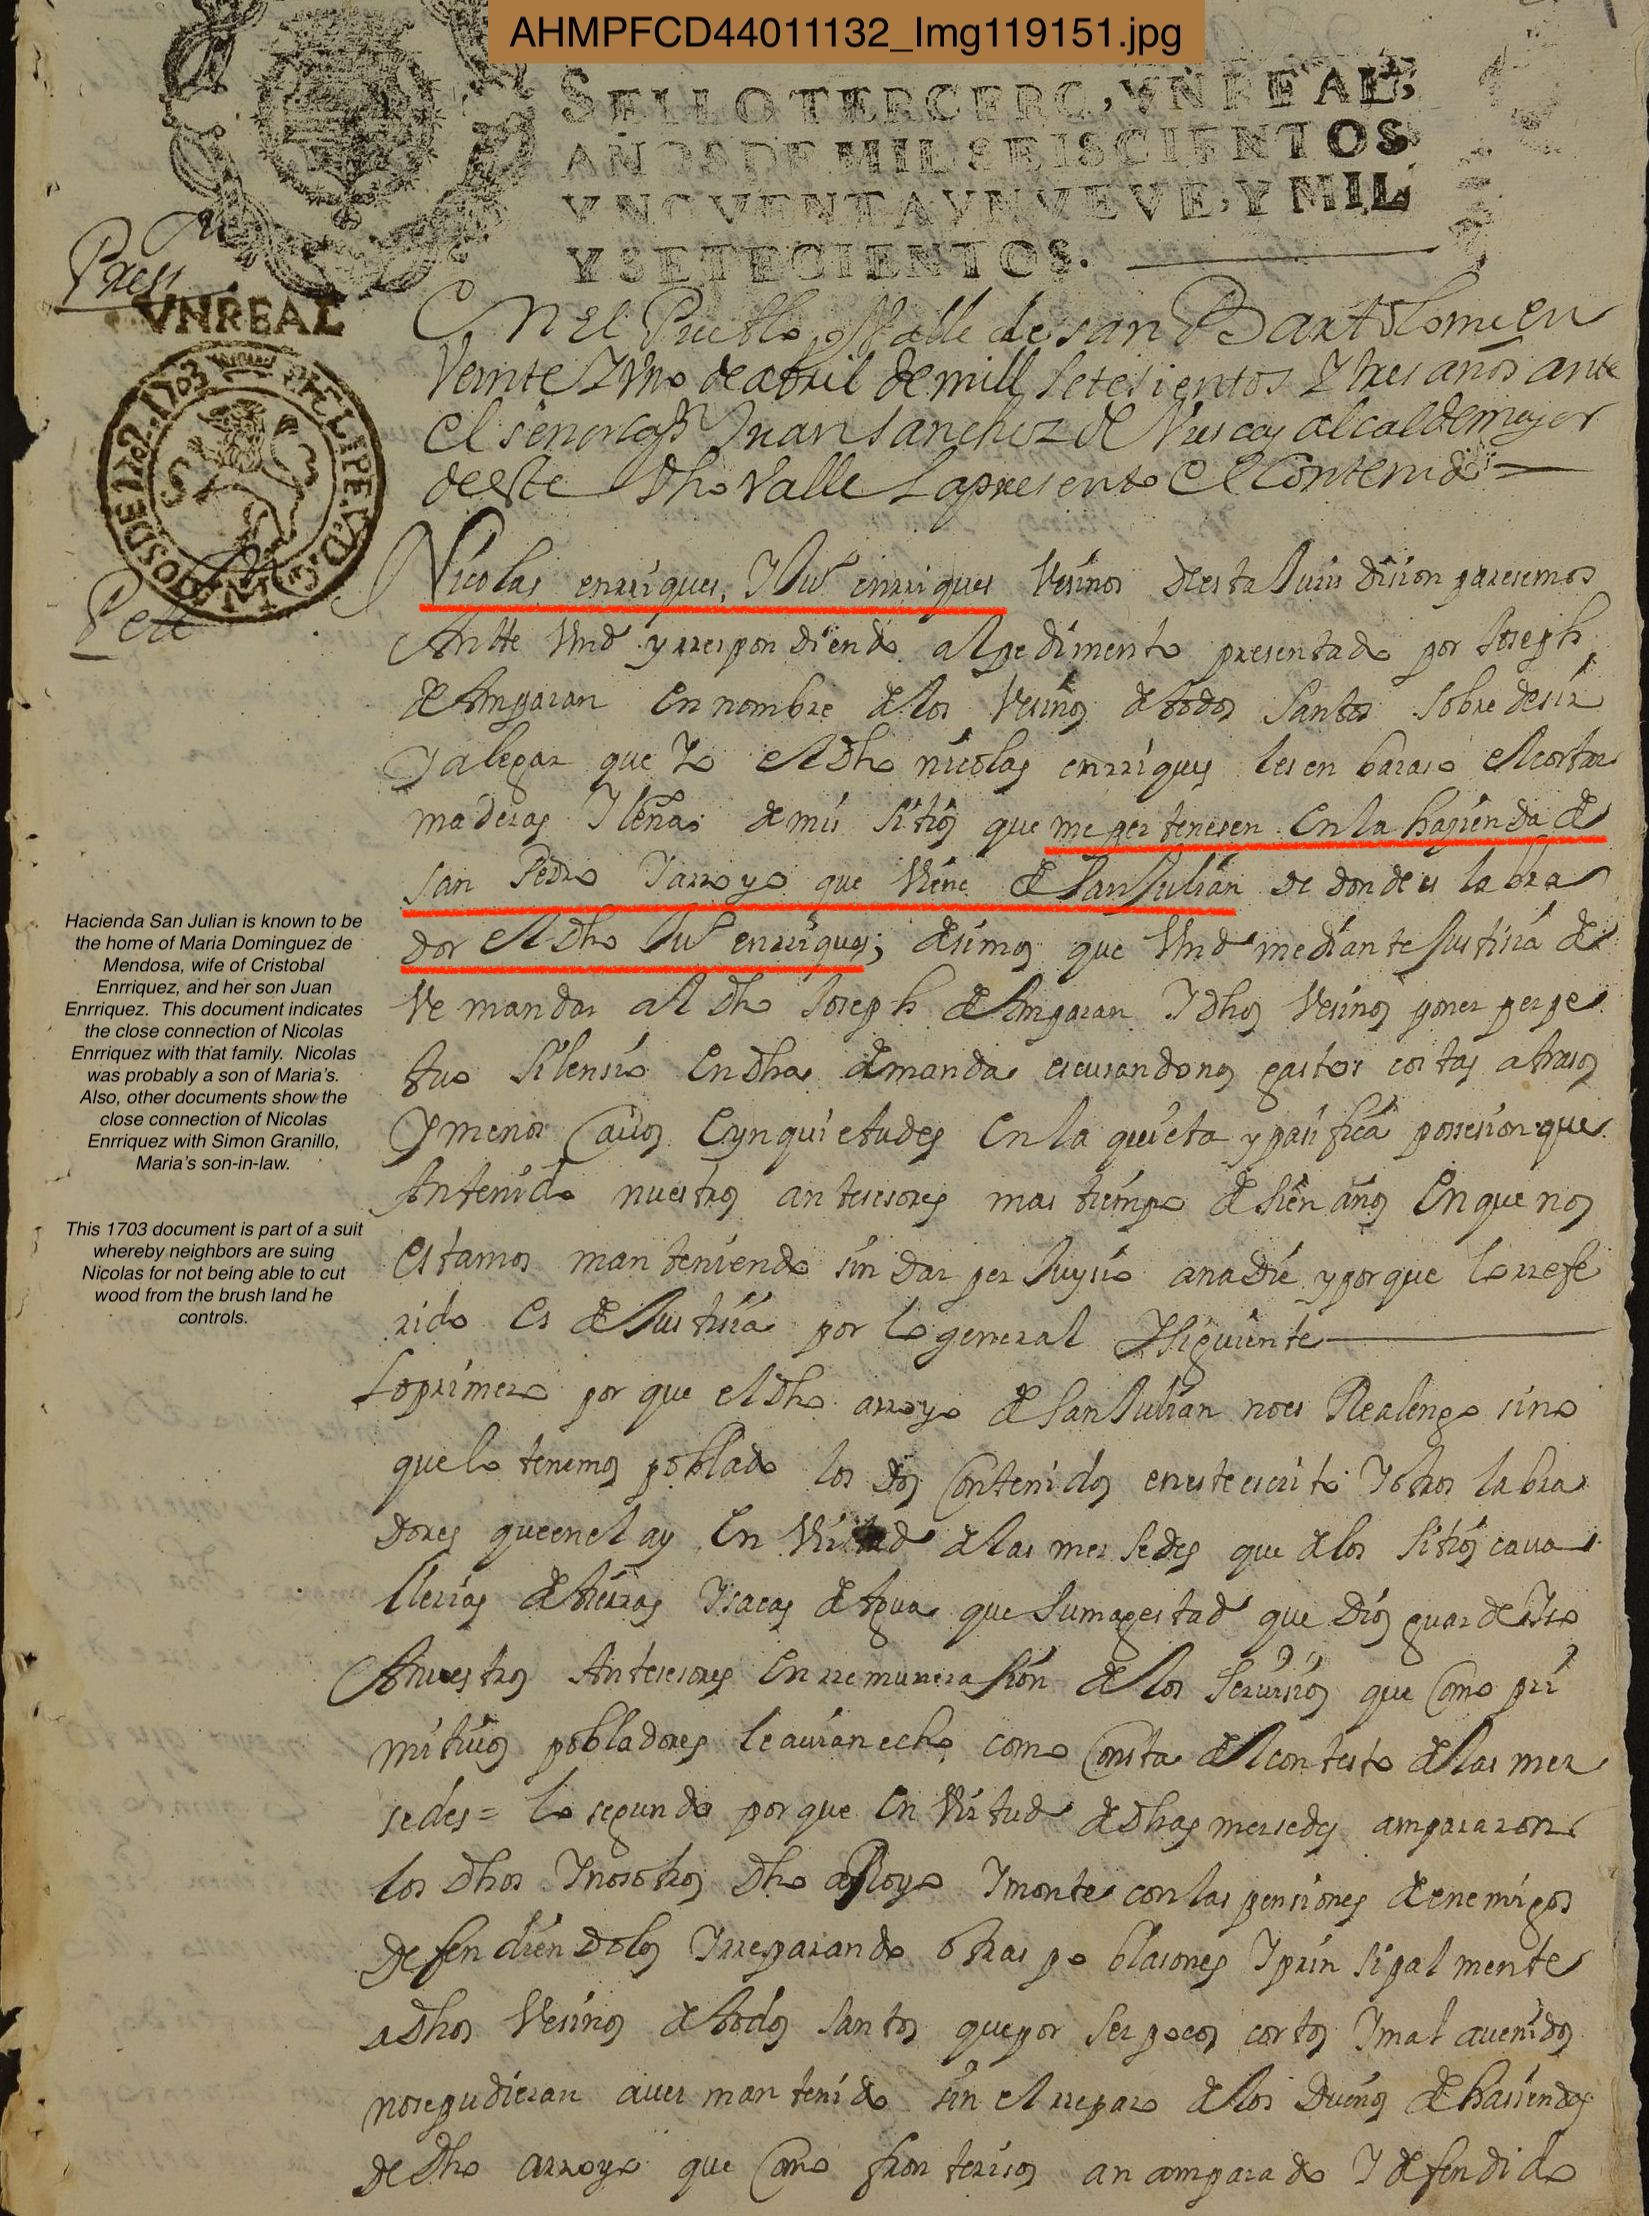 AHMPFCD44011132_Img119151.jpg
SELLO TERCERO, VN REAL,
AÑOS DE MIL SEISCIENTOS
Y NOVENTA Y NVEVE, Y MIL
Y SETECIENTOS.
Pressn
VNREAL
PHELIPE.V.D.G. AÑOS DE 1702.1703
En el Pueblo y Valle de san Bartolome en
Veinte y Vno de abril de mill setesientos y tres años ante
el señor Capn Juan sanchez de alcalde mayor
de este dho Valle la presento el Contenido =
Petn
Nicolas enrriques, y Jun enrriques Vesinos de esta Jurisdision paresemos
Antte Vmd y rrespondiendo al pedimento presentado por Joseph
de Amparan en nombre de los Vesinos de todos Santos sobre desir
y alegar que Yo el dho nicolas enrriques les enbaraso el cortar
maderas y leñas de mis sitios que me pertenesen en la hasienda de
san Pedro y arroyo que Viene de San Julian de donde es labra
dor el dho Jun enrriques; desimos que Vmd mediante Justisia de
Ve mandar al dho Joseph de Amparan y dhos Vesinos poner perpe
tuo silensio en dha demanda escusandonos gastos costas atrasos
y menos Cavos e ynquietudes en la quieta y pasifica possesion que
An tenido nuestros antesesores mas tiempo de sien años en que nos
estamos manteniendo sin dar perjuysio a nadie y porque lo rrefe
rido es de Justisia por lo general y siguiente
Lo primero por que el dho arroyo de San Julian no es Realengo sino
que lo tenemos poblado los dos Contenidos en este escrito y otros labra
dores que en el ay en Virtud de las mersedes que de los sitios cava
llerias de tierras y sacas de Agua que su magestad que Dios guarde iso
A nuestros Antesesores en rremunerasion de los servisios que Como pri
mitivos pobladores le avian echo como Consta del contesto de las mer
sedes = lo segundo porque en Virtud de dhas mersedes ampararon
los dhos y nosotros dho aRoyo y monte con las pensiones de enemigos
defendiendolos y rreparando otras poblasones y prinsipalmente
a dhos Vesinos de todos santos que por ser pocos cortos y mal avenidos
no se pudieran aver mantenido sin el rreparo de los Dueños de hasiendas
de dho arroyo que Como fronterisos an amparado y defendido
Hacienda San Julian is known to be
the home of Maria Dominguez de
Mendosa, wife of Cristobal
Enrriquez, and her son Juan
Enrriquez. This document indicates
the close connection of Nicolas
Enrriquez with that family. Nicolas
was probably a son of Maria's.
Also, other documents show the
close connection of Nicolas
Enrriquez with Simon Granillo,
Maria's son-in-law.
This 1703 document is part of a suit
whereby neighbors are suing
Nicolas for not being able to cut
wood from the brush land he
controls.